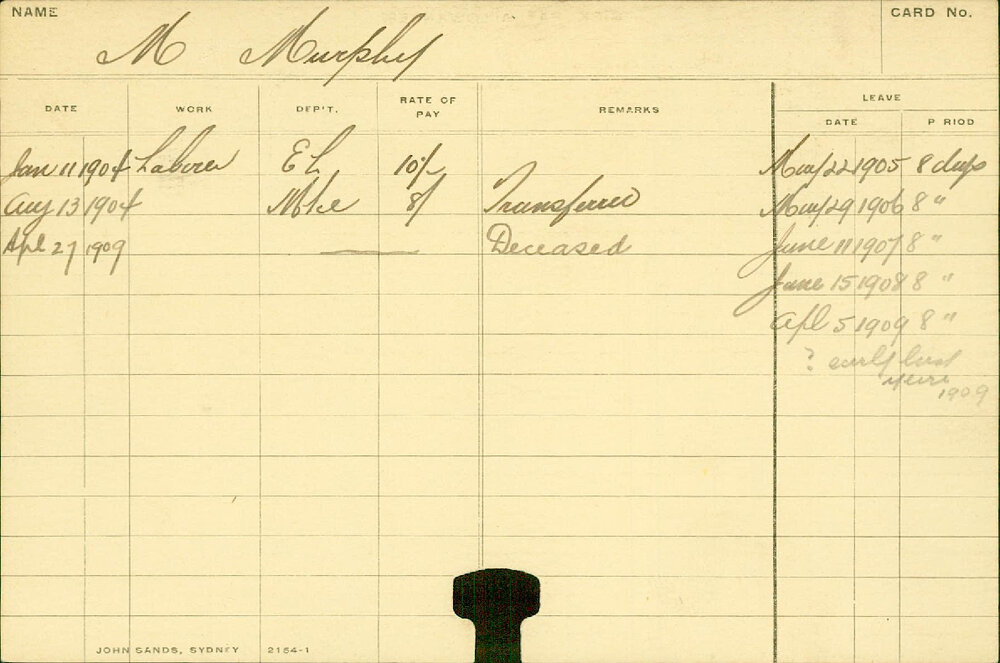 NAME CARD No.
M Murphy
DATE WORK DEP'T. RATE OF PAY REMARKS LEAVE
DATE P RIOD
Jan 11 1904 Laborer E L 10/- May 22 1905 8 days
Aug 13 1904 Mtce 8/ Transferred May 29 1906 8 "
Apl 27 1909 Deceased June 11 1907 8 "
June 15 1908 8 "
Apl 5 1909 8 "
? early last
year
1909
JOHN SANDS, SYDNEY 2154-1